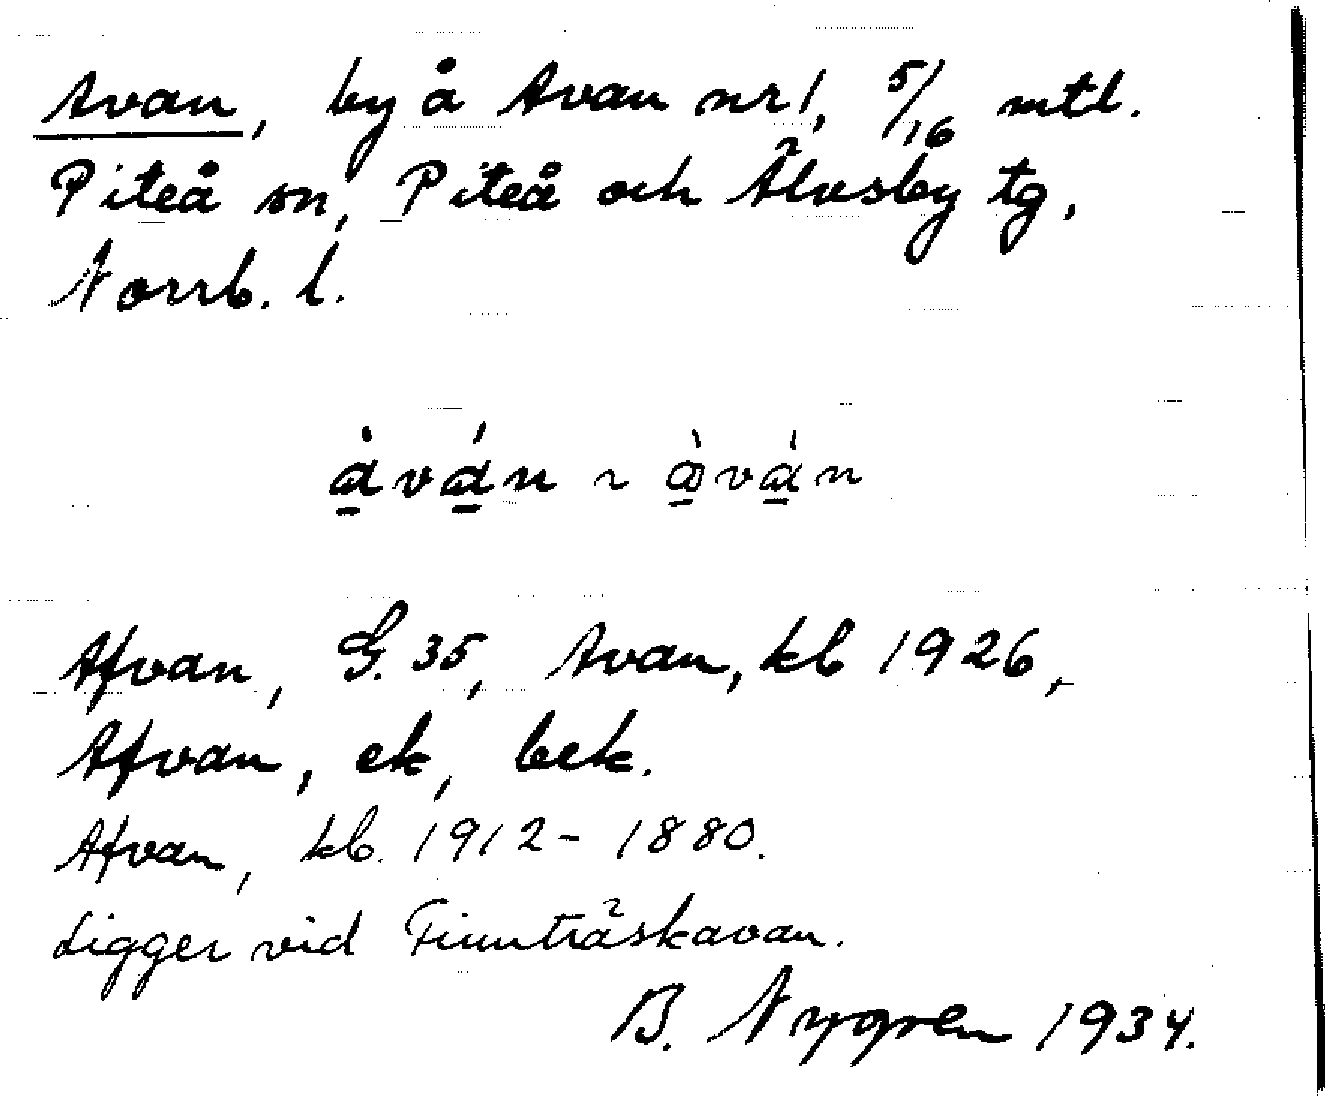 Avan, by å Avan nr 1, 5/16 mtl.
Piteå sn, Piteå och Älvsby tg,
Norrb. l.
a̱̍vá̱n ~ a̱̍vá̱n
Afvan, G. 35, Avan, kb 1926,
Afvan, ek, bek.
Afvan, kb. 1912-1880.
Ligger vid Finnträskavan.
B. Nygren 1934.